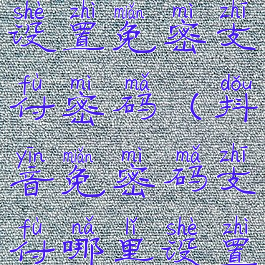 shè zhì miǎn mì zhī
设置免密支
fù mì mǎ dǒu
付密码（抖
yīn miǎn mì mǎ zhī
音免密码支
fù nǎ lǐ shè zhì
付哪里设置